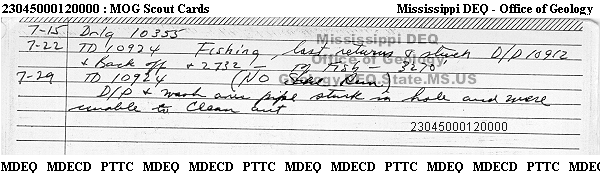 23045000120000 : MOG Scout Cards Mississippi DEQ - Office of Geology
7-15 Drlg 10355
Mississippi DEQ
7-22 TD 10924 Fishing, lost returns & stuck D/P 10912
Office of Geology
& Back off & 2732 - 3270
7-29 TD 10924 (No
Geology.DEQ.State.MS.US
D/P & wash over pipe stuck in hole and were
unable to Clean out
23045000120000
MDEQ MDECD PTTC MDEQ MDECD PTTC MDEQ MDECD PTTC MDEQ MDECD PTTC MDEQ MDECD PTTC MDEQ